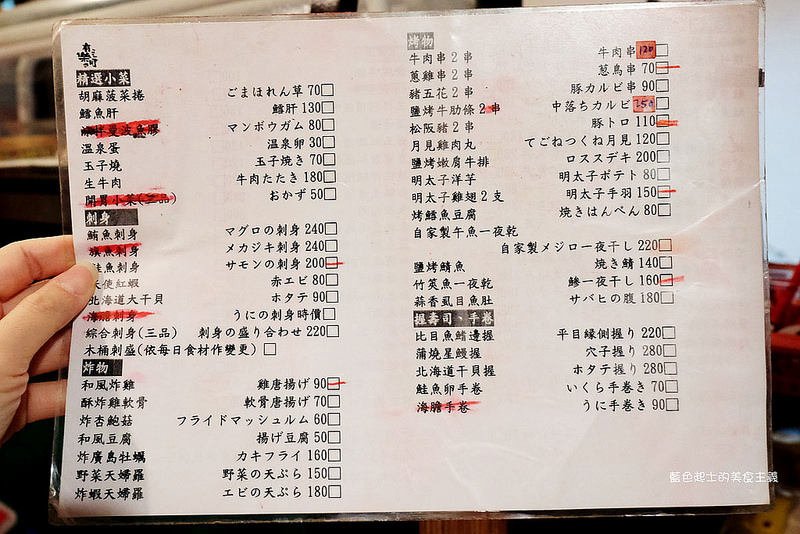 精選小菜
胡麻菠菜捲 ごまほれん草 70
鱈魚肝 鱈肝 130
麻拌曼波魚膠 マンボウガム 80
溫泉蛋 温泉卵 30
玉子燒 玉子焼き 70
生牛肉 牛肉たたき 180
開胃小菜(三品) おかず 50
刺身
鮪魚刺身 マグロの刺身 240
旗魚刺身 メカジキ刺身 240
鮭魚刺身 サモンの刺身 200
天使紅蝦 赤エビ 80
北海道大干貝 ホタテ 90
海膽刺身 うにの刺身時價
綜合刺身(三品) 刺身の盛り合わせ 220
木桶刺盛(依每日食材作變更)
炸物
和風炸雞 雞唐揚げ 90
酥炸雞軟骨 軟骨唐揚げ 70
炸杏鮑菇 フライドマッシュルム 60
和風豆腐 揚げ豆腐 50
炸廣島牡蠣 カキフライ 160
野菜天婦羅 野菜の天ぷら 150
炸蝦天婦羅 エビの天ぷら 180
烤物
牛肉串 2 串 牛肉串 120
蔥雞串 2 串 蔥鳥串 70
豬五花 2 串 豚カルビ串 90
鹽烤牛肋條 2 串 中落ちカルビ 250
松阪豬 2 串 豚トロ 110
月見雞肉丸 てごねつくね月見 120
鹽烤嫩肩牛排 ロススデキ 200
明太子洋芋 明太子ポテト 80
明太子雞翅 2 支 明太子手羽 150
烤鱈魚豆腐 焼きはんぺん 80
自家製午魚一夜乾
自家製メジロ一夜干し 220
鹽烤鯖魚 焼き鯖 140
竹筴魚一夜乾 鯵一夜干し 160
蒜香虱目魚肚 サバヒの腹 180
握壽司、手卷
比目魚鰭邊握 平目縁側握り 220
蒲燒星鰻握 穴子握り 280
北海道干貝握 ホタテ握り 280
鮭魚卵手卷 いくら手巻き 70
海膽手卷 うに手巻き 90
藍色起士的美食主義